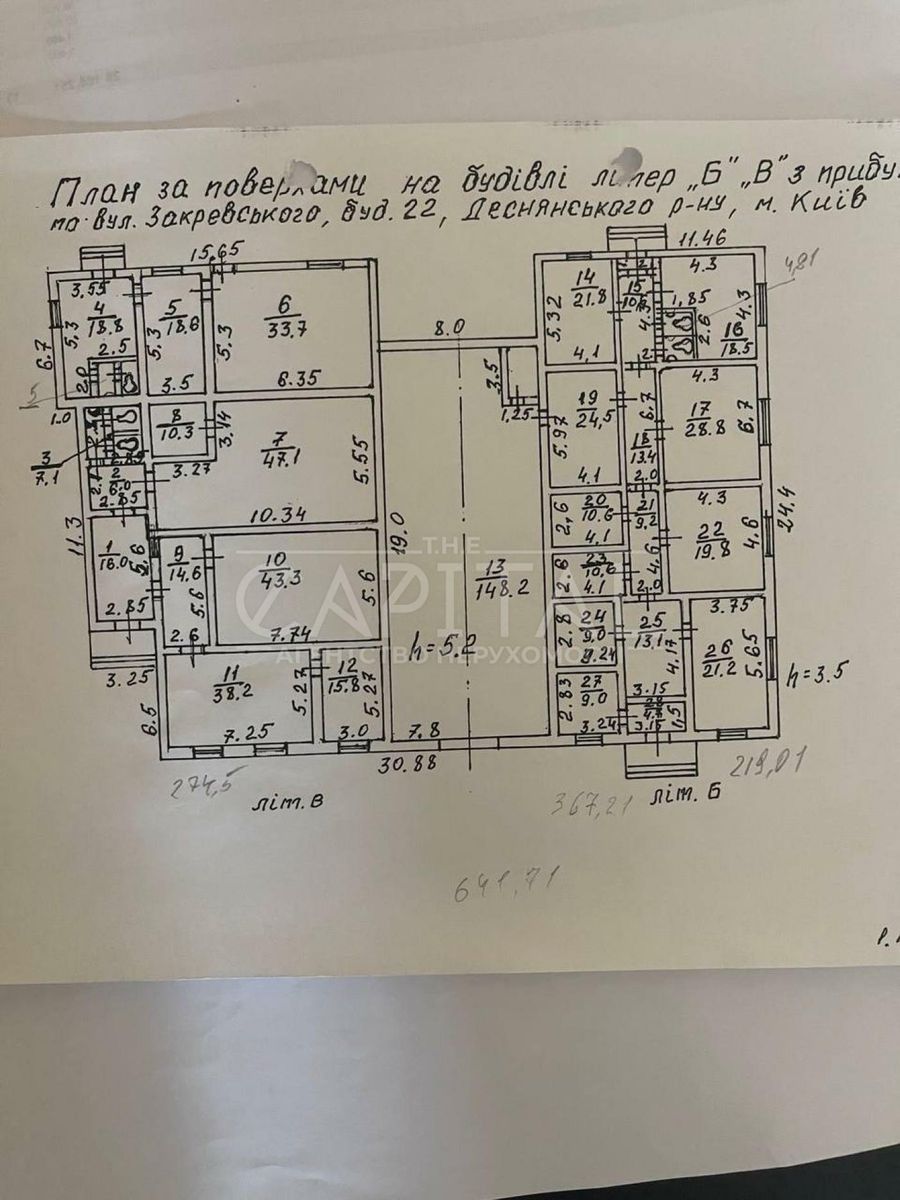 План за поверхами на будівлі літер „Б" „В" з прибу
по вул. Закревського, буд. 22, Деснянського р-ну, м. Київ
15.65
11.46
4.81
3.55
4
18.8
5.3
2.5
2.0
6.7
5
5
18.6
5.3
3.5
6
33.7
5.3
6.35
8.0
14
21.8
5.32
4.1
15
4.3
4.3
1.85
2.6
4.3
16
18.5
3.5
1.25
1.0
3
7.1
8
10.3
3.14
3.27
7
47.1
5.55
10.34
2
6.0
2.85
11.3
1
16.0
5.6
2.85
3.25
9
14.6
5.6
2.6
10
43.3
5.6
7.74
19.0
13
148.2
h=5.2
7.8
11
38.2
5.27
7.25
6.5
12
15.8
5.27
3.0
30.88
19
24.5
5.97
4.1
6.7
18
13.4
2.0
4.3
17
28.8
6.7
20
10.6
2.6
4.1
21
9.2
4.6
2.0
4.3
22
19.8
4.6
24.4
23
10.6
2.6
4.1
24
9.0
2.8
3.24
25
13.1
4.17
3.15
3.75
26
21.2
5.65
h=3.5
27
9.0
2.83
3.24
28
4.7
3.15
1.5
274,5
літ. В
367,21
літ. Б
219,01
641,71
THE
CAPITAL
АГЕНТСТВО НЕРУХОМО